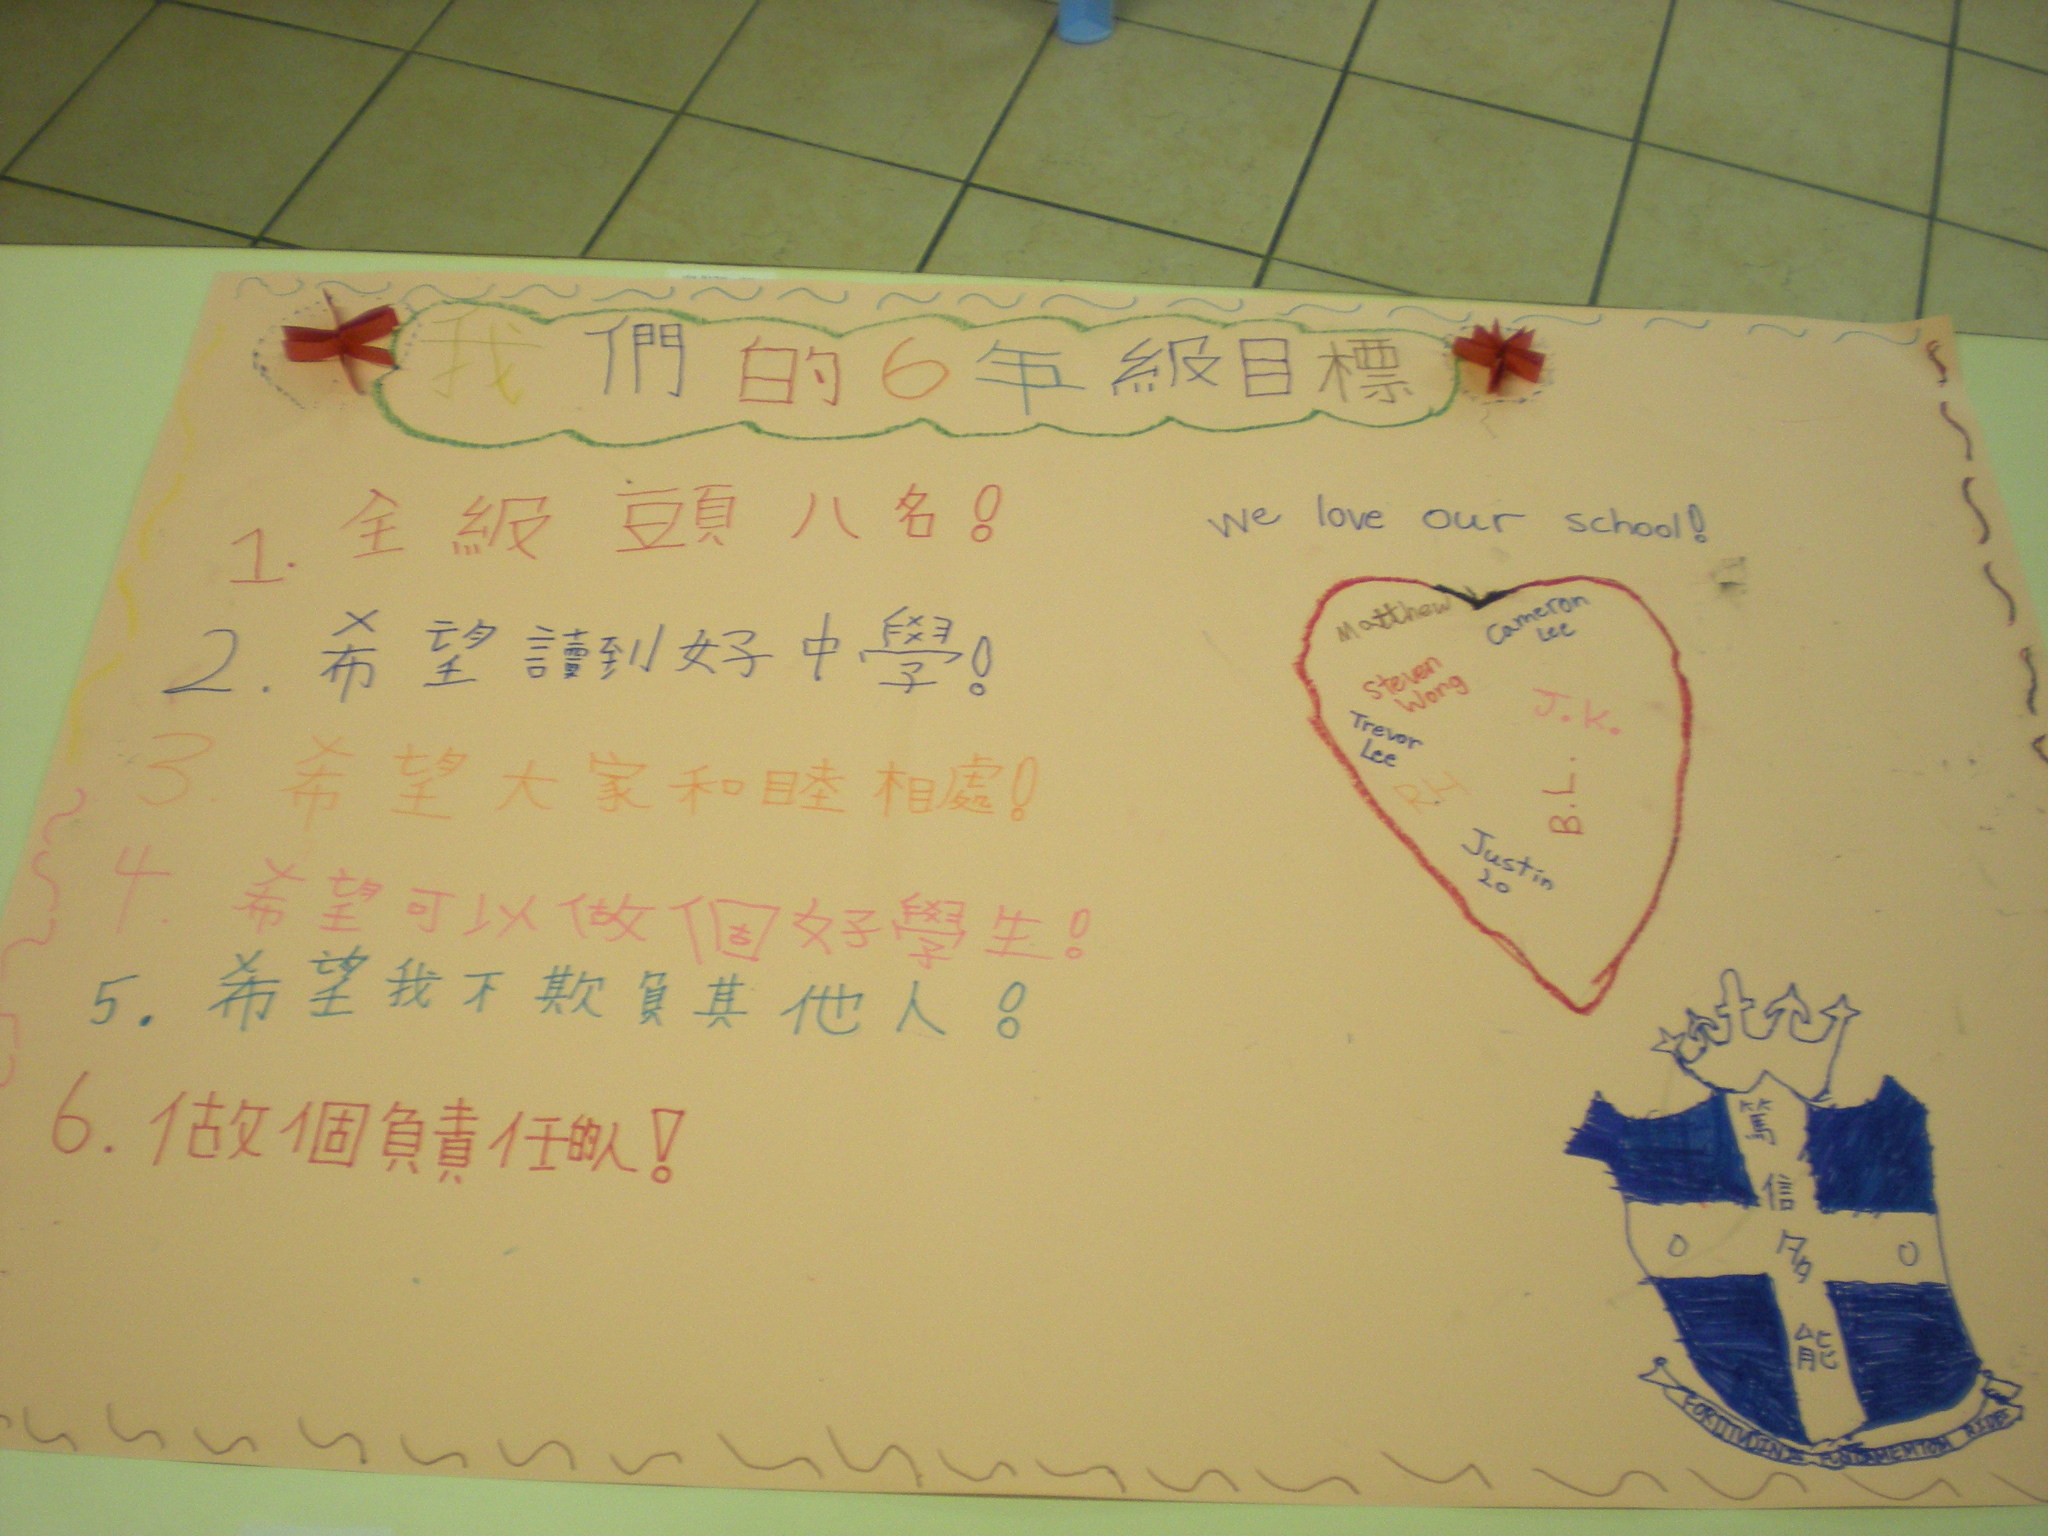 我們的6年級目標
1. 全級頭八名!
2. 希望讀到好中學!
3. 希望大家和睦相處!
4. 希望可以做個好學生!
5. 希望我不欺負其他人!
6. 做個負責任的人!
we love our school!
Matthew
Cameron
Lee
Steven
Wong
J.K.
Trevor
Lee
RH
B.L.
Justin
20
篤
信
多
能